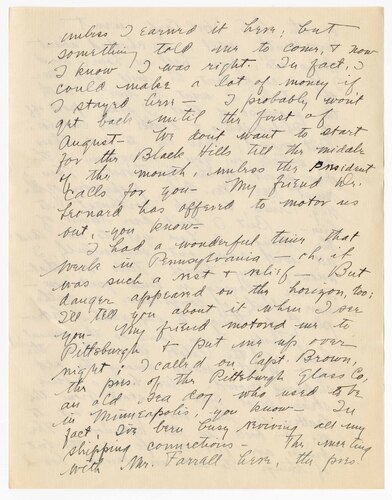 unless I earned it here; but
something told me to come, & now
I know I was right. In fact, I
could make a lot of money if
I stayed here — I probably won't
get back until the first of
August — We don't want to start
for the Black Hills till the middle
of the month, unless the President
calls for you — My friend Mr.
Leonard has offered to motor us
out, you know —
I had a wonderful time that
week in Pennsylvania — oh, it
was such a rest & relief — But
danger appeared on the horizon, too;
I'll tell you about it when I see
you — My friend motored me to
Pittsburgh & put me up over
night; I called on Capt. Brown,
the pres. of the Pittsburgh Glass Co,
an old sea dog, who used to be
in Minneapolis, you know — In
fact I've been busy reviving all my
shipping connections — The meeting
with Mr. Farrall here, the pres.